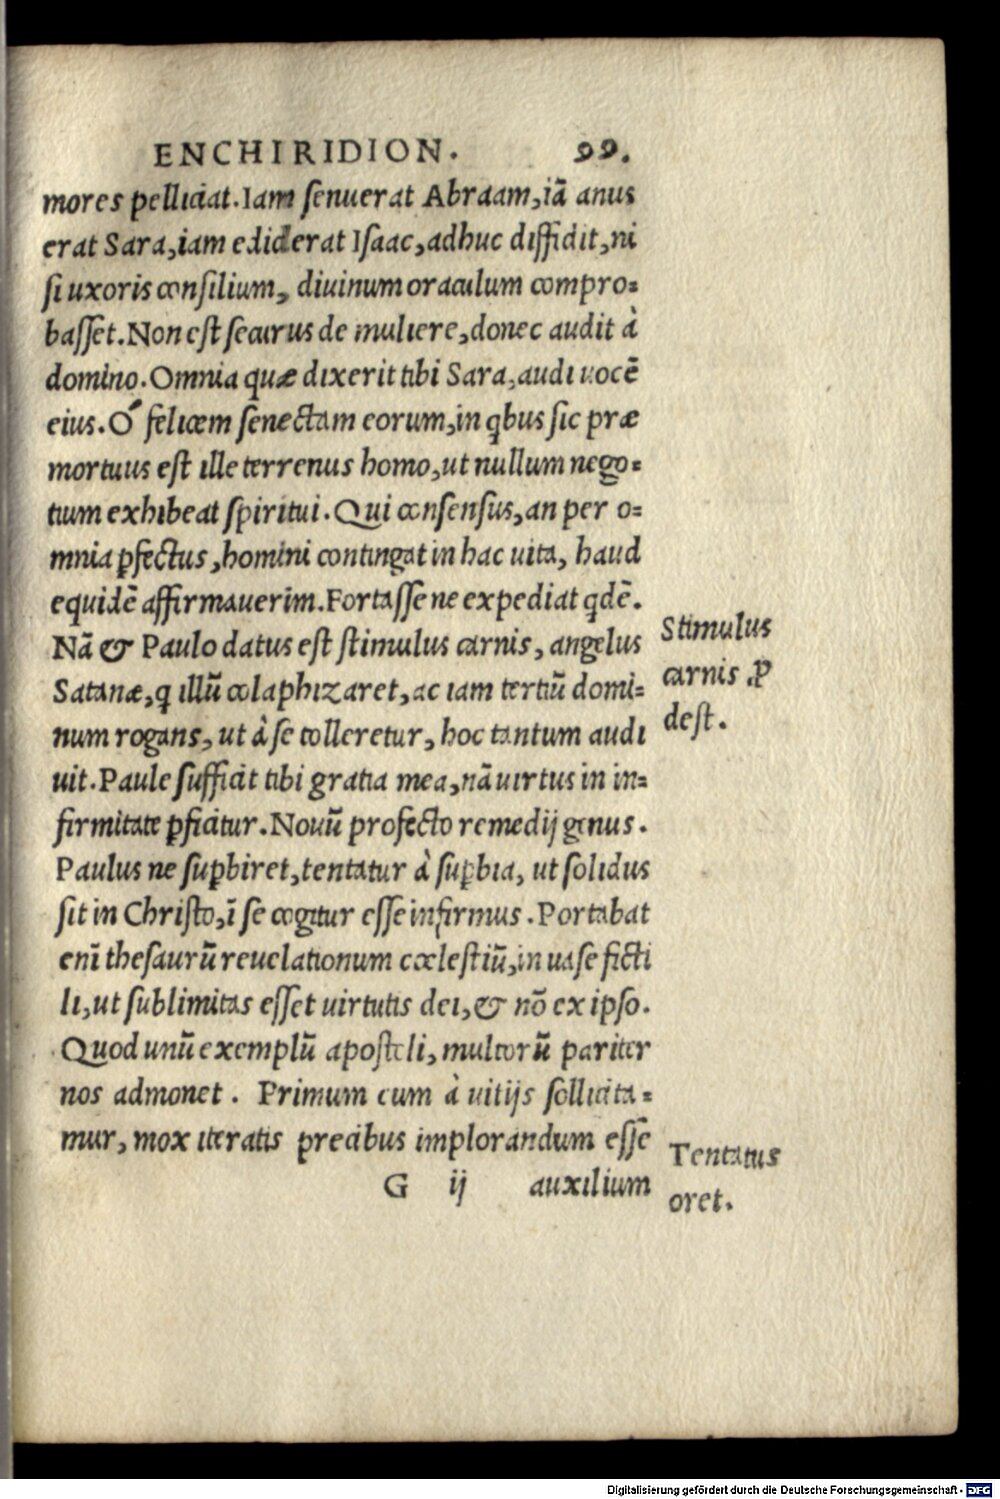 ENCHIRIDION. 99.
mores pelliciat. Iam ſenuerat Abraam, iã anus
erat Sara, iam ediderat Iſaac, adhuc diffidit, ni
ſi uxoris conſilium, diuinum oraculum compro=
baſſet. Non eſt ſecurus de muliere, donec audit à
domino. Omnia quæ dixerit tibi Sara, audi uocẽ
eius. Ó felicem ſenectam eorum, in qbus ſic præ
mortuus eſt ille terrenus homo, ut nullum nego=
tium exhibeat ſpiritui. Qui conſenſus, an per o=
mnia ꝑfectus, homini contingat in hac uita, haud
equidẽ affirmauerim. Fortaſſe ne expediat qdẽ.
Nã & Paulo datus eſt ſtimulus carnis, angelus
Satanæ, q illũ colaphizaret, ac iam tertiũ domi=
num rogans, ut à ſe tolleretur, hoc tantum audi
uit. Paule ſufficit tibi gratia mea, nã uirtus in in=
firmitate ꝑficitur. Nouũ profecto remedij genus.
Paulus ne ſuꝑbiret, tentatur à ſuꝑbia, ut ſolidus
ſit in Chriſto, ĩ ſe cogitur eſſe infirmus. Portabat
enĩ theſaurũ reuelationum cœleſtiũ, in uaſe ficti
li, ut ſublimitas eſſet uirtutis dei, & nõ ex ipſo.
Quod unũ exemplũ apoſtoli, multorũ pariter
nos admonet. Primum cum à uitijs ſollicita=
mur, mox iteratis precibus implorandum eſſe
G ij auxilium
Stimulus
carnis ꝓ
deſt.
Tentatus
oret.
Digitalisierung gefördert durch die Deutsche Forschungsgemeinschaft - DFG